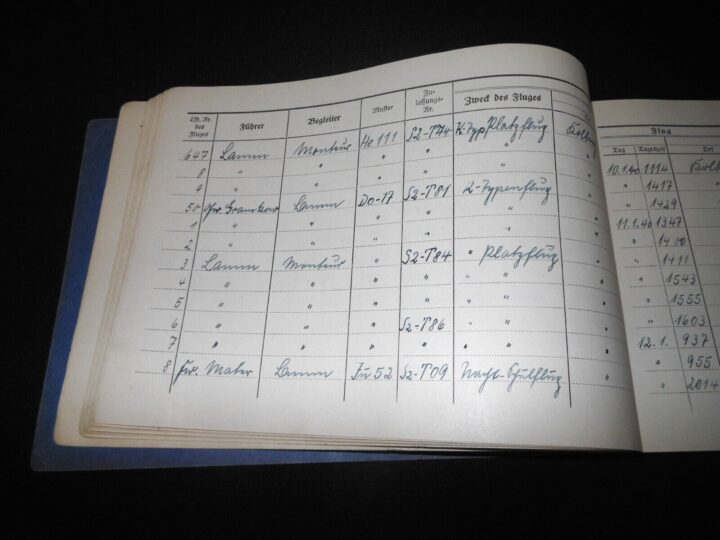 Lfd. Nr. des Fluges Führer Begleiter Muster Zulassungs-Nr. Zweck des Fluges Flug
Tag Tageszeit Ort
647 Lamm Montur He 111 S2-T44 K-Typ Platzflug Kolberg 10.1.40 1114 Kolb
8 " " " " " " " 1417
9 " " " " " " " 1429
50 Gramkow Lamm Do-17 S2-T81 K-Typenflug " 11.1.40 1347
1 " " " " " " " 1400
2 " " " " " " " 1411
3 Lamm Montur " S2-T84 " Platzflug " " 1543
4 " " " " " " " " 1555
5 " " " " " " " " 1603
6 " " " S2-T86 " " " 12.1. 937
7 " " " " " " " " 955
8 Fw. Mater Lamm Ju 52 S2-T09 Nacht-Schulflug " " 2014